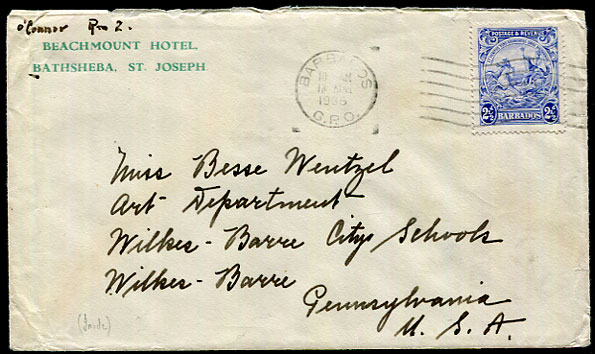 O'Connor Rm 2.
BEACHMOUNT HOTEL,
BATHSHEBA, ST. JOSEPH.
BARBADOS
1936
G.P.O.
POSTAGE & REVENUE
2½ BARBADOS 2½
Miss Besse Wentzel
Art Department
Wilkes-Barre City Schools
Wilkes-Barre
Pennsylvania
U. S. A.